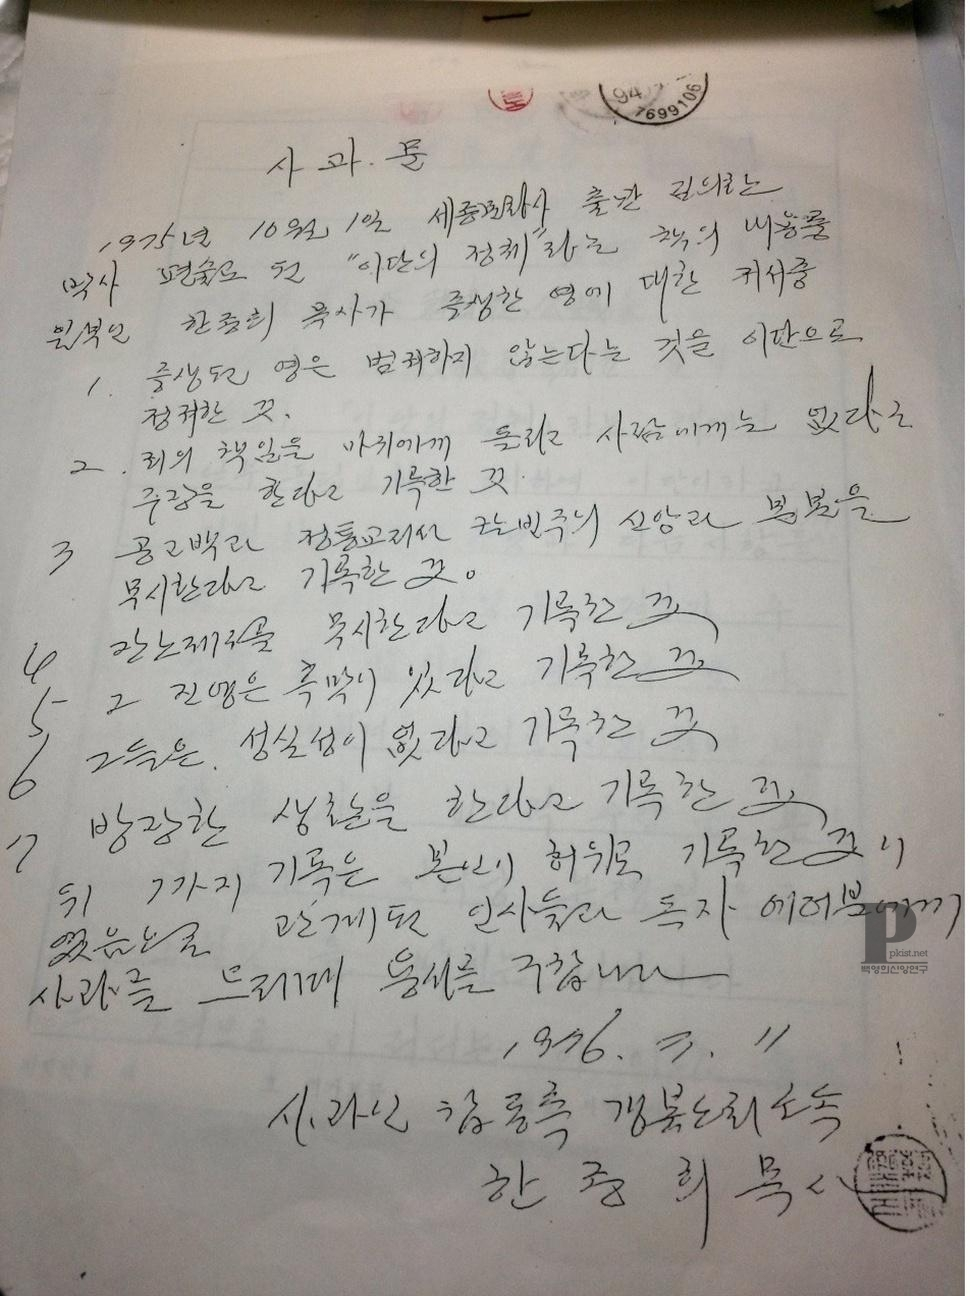 94
7699106
사과.문
1975년 10월 1일 세종문화사 출판 김의환
박사 편술로 된 "이단의 정체"라는 책의 내용중
일부인 한종희 목사가 중생한 영에 대한 저서중
1. 중생된 영은 범죄하지 않는다는 것을 이단으로
정죄한 것.
2. 죄의 책임을 마귀에게 돌리고 사람에게는 없다는
주장을 한다고 기록한 것.
3 공고백과 정통교리서 칼빈주의 신앙과 본분을
무시한다고 기록한 것。
4 만인제사를 무시한다고 기록한 것
5 그 진영은 흑막이 있다고 기록한 것
6 그들은. 성실성이 없다고 기록한 것
7 방장한 생활을 한다고 기록한 것
위 7가지 기록은 본인이 허위로 기록한 것이
였음으로 관계된 인사들과 독자 여러분에게
사과를 드리며 용서를 구합니다
1976. 7. 11
사과인 합동측 경북노회 소속
한종희 목사
P
pkist.net
백영희신앙연구